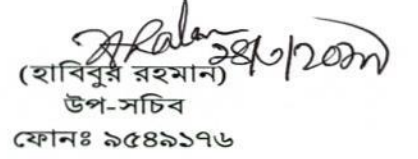 ২৪/৩/২০১৯
(হাবিবুর রহমান)
উপ-সচিব
ফোনঃ ৯৫৪৯১৭৬